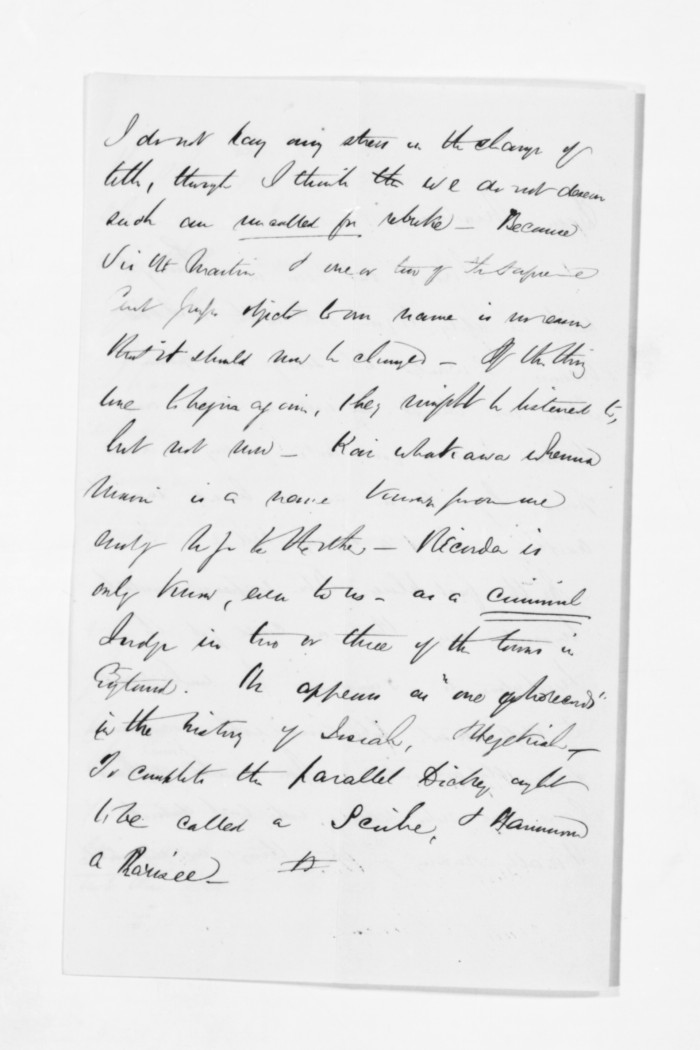 I do not lay any stress in the change of
title, though I think the we do not deserve
such an uncalled for rebuke – Because
Sir W Martin & one or two of the Supreme
Court Judges object to our name is no reason
that it should now be changed – If the thing
were to begin again, they might be listened to,
but not now – Kai whakawa whenua
Maori is a name known from one
end of to the other – Recorder is
only known, even to us – as a criminal
Judge in two or three of the towns in
England. He appears as "one who records"
in the history of Isaiah, Hezekiah –
To complete the parallel Dickey ought
to be called a Scribe, &
a Pharisee –